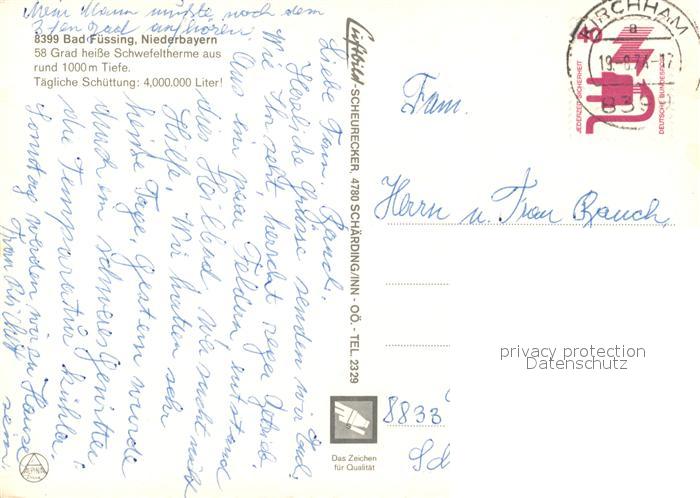 Mein Mann müßte noch dem
3 ten Bad aufhören.
8399 Bad Füssing, Niederbayern
58 Grad heiße Schwefeltherme aus
rund 1000 m Tiefe.
Tägliche Schüttung: 4,000.000 Liter!
Liebe Fam. Rauch.
Herzliche Grüsse senden wir Euch.
Wie Ihr seht, herrscht rege Betrieb.
Aus ein paar Feldern, entstand
dies Heilbad, wer sucht nicht
Hilfe. Wir hatten sehr
heiße Tage, gestern wurde
durch ein schweres Gewitter
die Temparatur kühler.
Sonntag werden wir zu Hause
sein.
Luftbild-SCHEURECKER, 4780 SCHÄRDING/INN - OÖ. - TEL. 2329
Das Zeichen
für Qualität
ALPINA
Druck
KIRCHHAM
a
19.-8.74-17
839
40
JEDERZEIT SICHERHEIT
DEUTSCHE BUNDESPOST
Fam.
Herrn u. Frau Rauch,
privacy protection
Datenschutz
8833